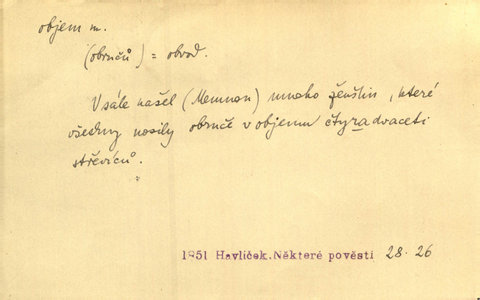 objem m.
(obručů) = obvod.
V sále našel (Memnon) mnoho ženštin, které
všechny nosily obruče v objemu čtyradvaceti
střevíců.
1851 Havlíček.Některé pověsti 28.26